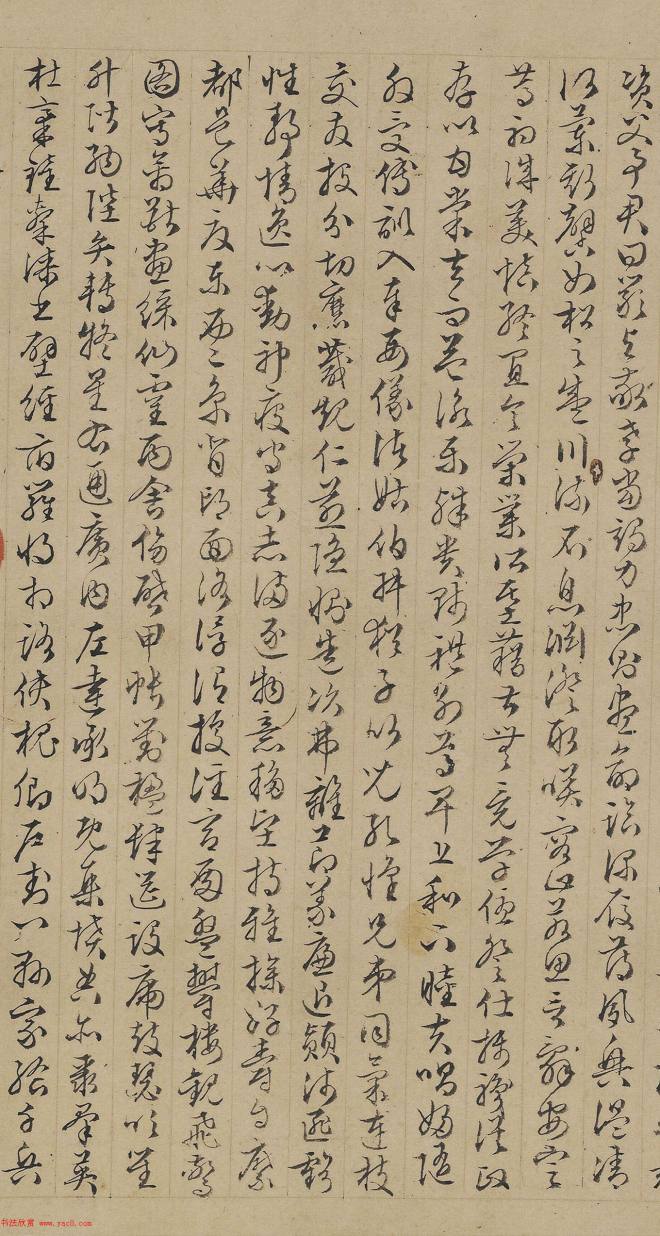 資父事君曰嚴與敬孝當竭力忠則盡命臨深履薄夙興溫凊
似蘭斯馨如松之盛川流不息淵澄取暎容止若思言辭安定
篤初誠美慎終宜令榮業所基藉甚無竟學優登仕攝職從政
存以甘棠去而益詠樂殊貴賤禮別尊卑上和下睦夫唱婦隨
外受傅訓入奉母儀諸姑伯叔猶子比兒孔懷兄弟同氣連枝
交友投分切磨箴規仁慈隱惻造次弗離節義廉退顛沛匪虧
性靜情逸心動神疲守真志滿逐物意移堅持雅操好爵自縻
都邑華夏東西二京背邙面洛浮渭據涇宮殿盤鬱樓觀飛驚
圖寫禽獸畫綵仙靈丙舍傍啟甲帳對楹肆筵設席鼓瑟吹笙
升階納陛弁轉疑星右通廣內左達承明既集墳典亦聚羣英
杜稾鍾隸漆書壁經府羅將相路俠槐卿戶封八縣家給千兵
书法欣赏 www.yac8.com